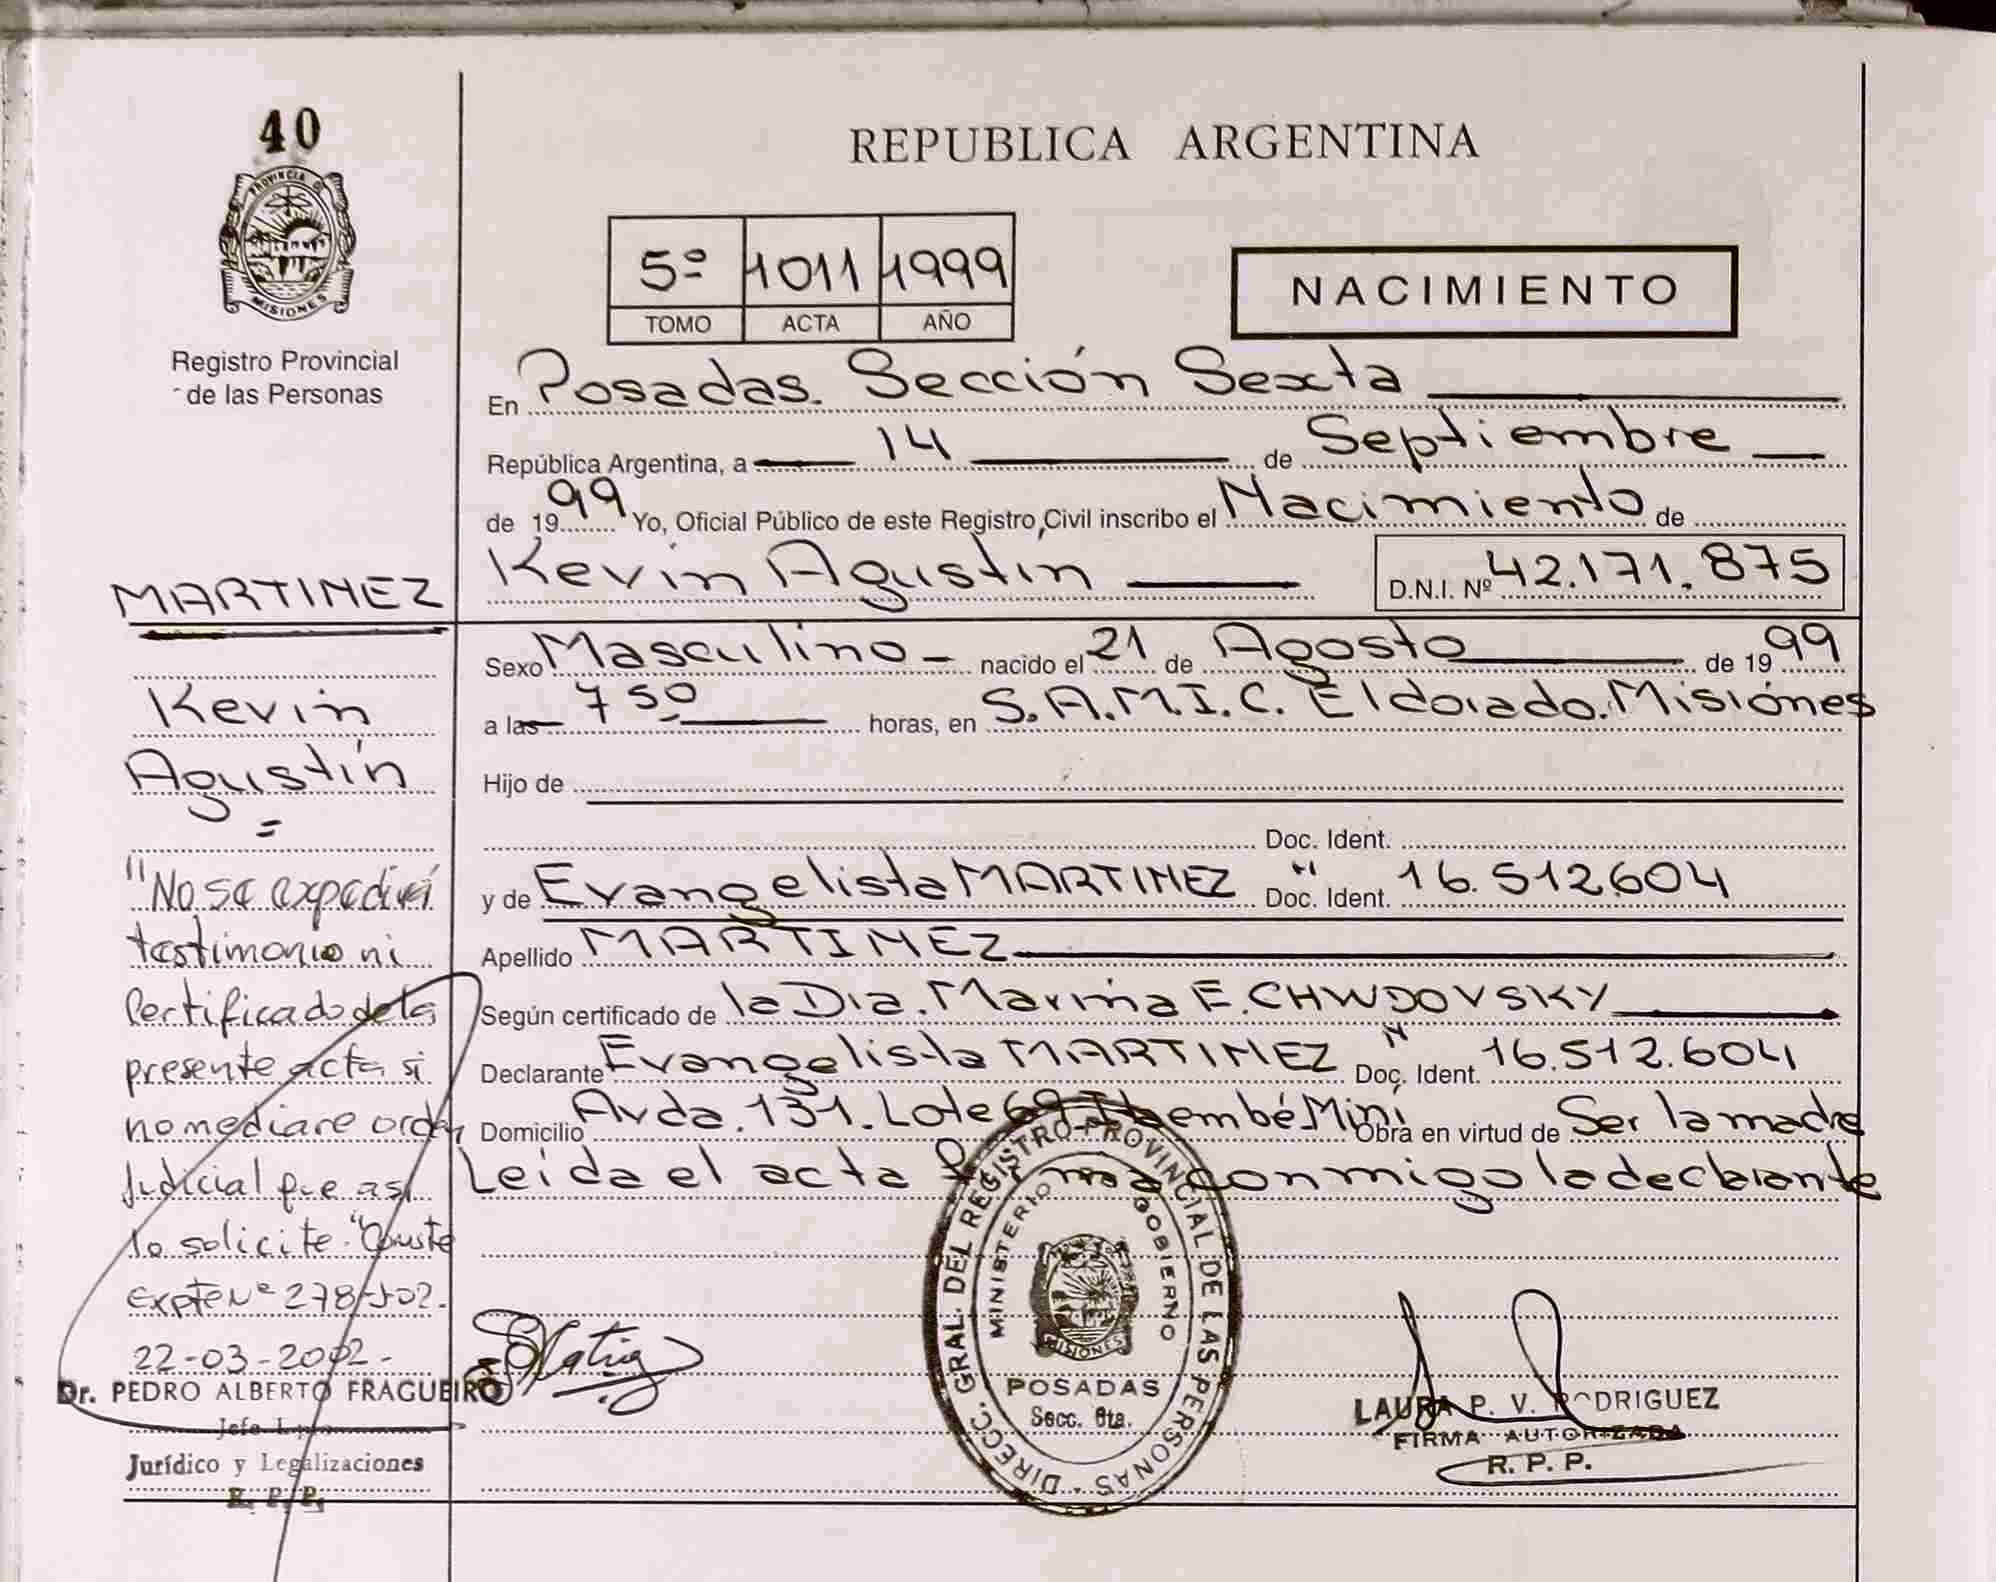 40
PROVINCIA DE
MISIONES
Registro Provincial
de las Personas
REPUBLICA ARGENTINA
5º 1011 1999
TOMO ACTA AÑO
NACIMIENTO
En Posadas. Sección Sexta
República Argentina, a 14 de Septiembre
de 1999 Yo, Oficial Público de este Registro Civil inscribo el Nacimiento de
Kevin Agustín D.N.I. Nº 42.171.875
Sexo Masculino nacido el 21 de Agosto de 1999
a las 7 50 horas, en S.A.M.I.C. Eldorado. Misiónes
Hijo de
Doc. Ident.
y de Evangelista MARTINEZ Doc. Ident. 16.512.604
Apellido MARTINEZ
Según certificado de la Dra. Marina E. CHWDOVSKY
Declarante Evangelista MARTINEZ Doc. Ident. 16.512.604
Domicilio Avda. 131. Lote 69 Itaembé Miní Obra en virtud de Ser la madre
Leída el acta firma conmigo la declarante
MARTINEZ
Kevin
Agustín
=
"No se expedirá
testimonio ni
Certificado de la
presente acta si
no mediare orden
Judicial que así
lo solicite". Conste
Expte Nº 278-J-02.
22-03-2002-
Dr. PEDRO ALBERTO FRAGUEIRO
Jefe
Jurídico y Legalizaciones
R. P. P.
DIRECC. GRAL. DEL REGISTRO PROVINCIAL DE LAS PERSONAS
MINISTERIO GOBIERNO
MISIONES
POSADAS
Secc. 6ta.
LAURA P. V. RODRIGUEZ
FIRMA AUTORIZADA
R. P. P.